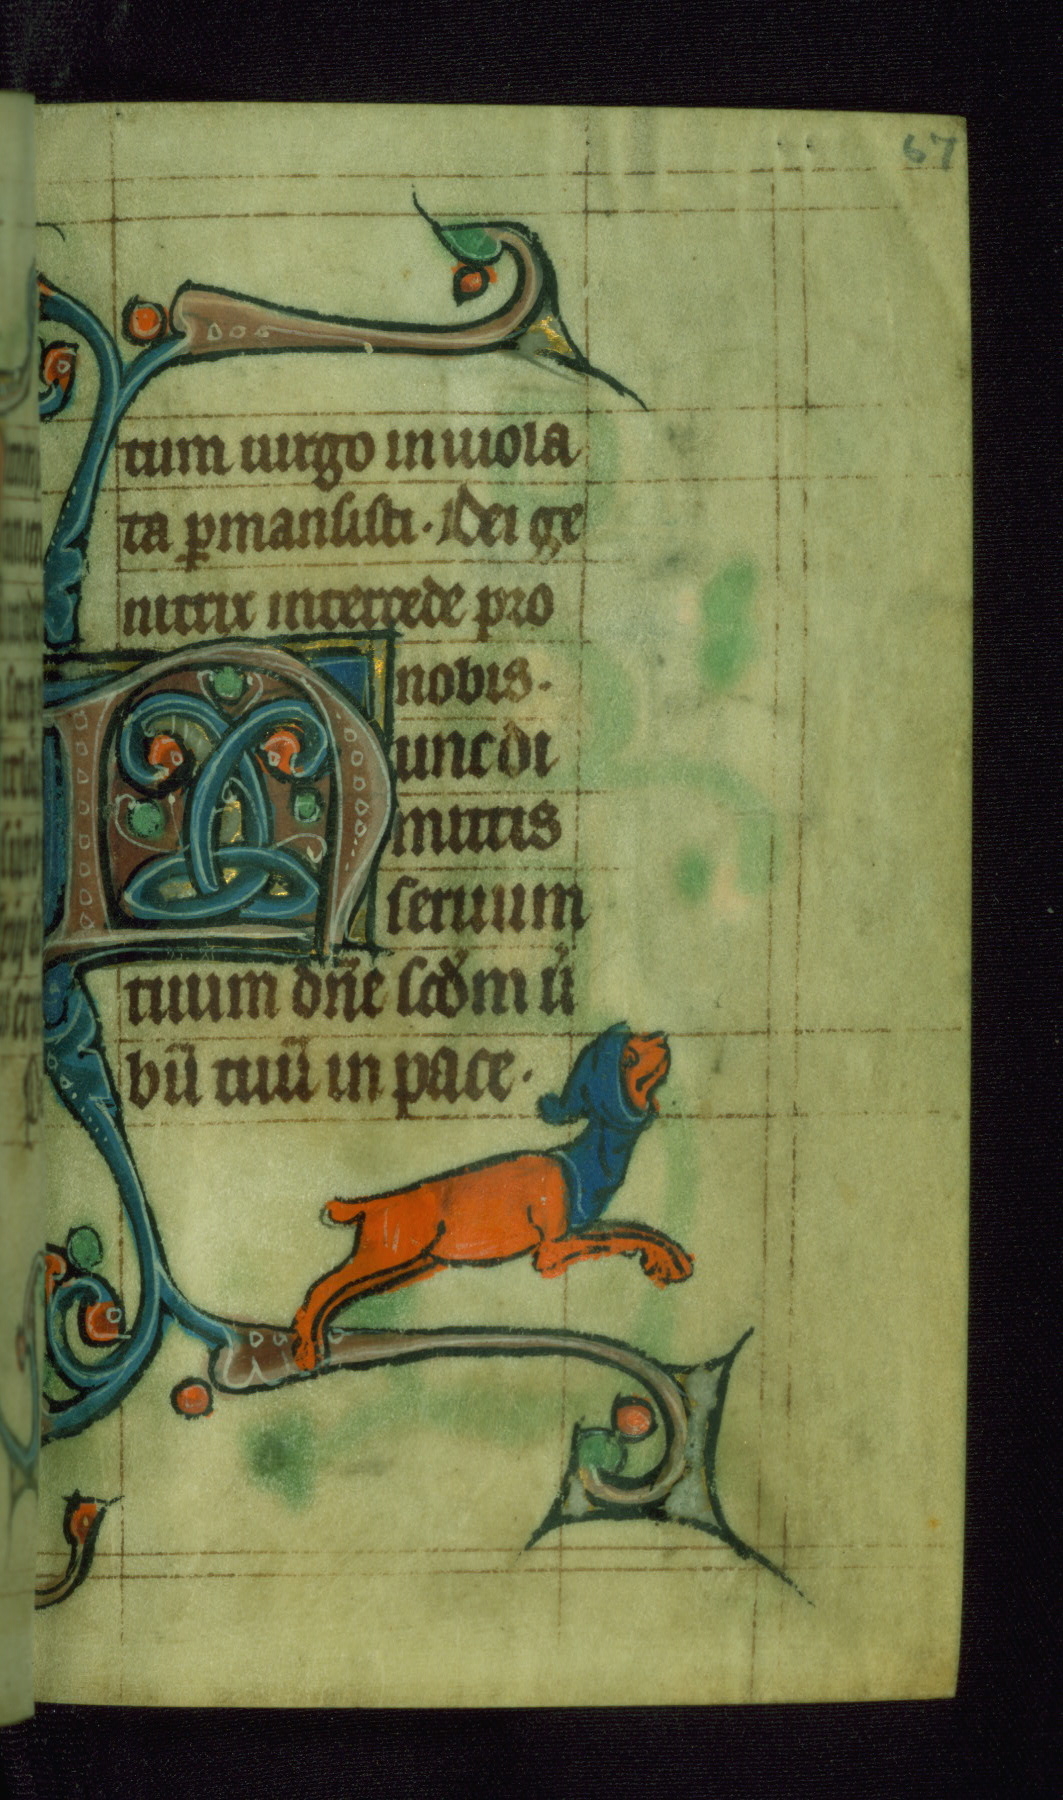 67
tum uirgo inuiola
ta ꝑmansisti. Dei ge
nitrix intercede pro
nobis.
Nunc di
mittis
seruum
tuum dn̄e scd̄m ū
bū tuū in pace.